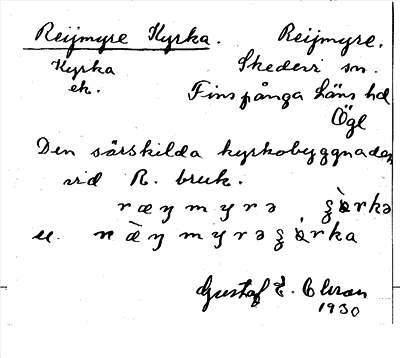 Reijmyre Kyrka. Reijmyre.
Kyrka Skedevi sn.
ek. Finspånga läns hd
Ögl
Den särskilda kyrkobyggnaden
vid R. bruk.
ræymyrə
ræymyrə
Gustaf E.
1930